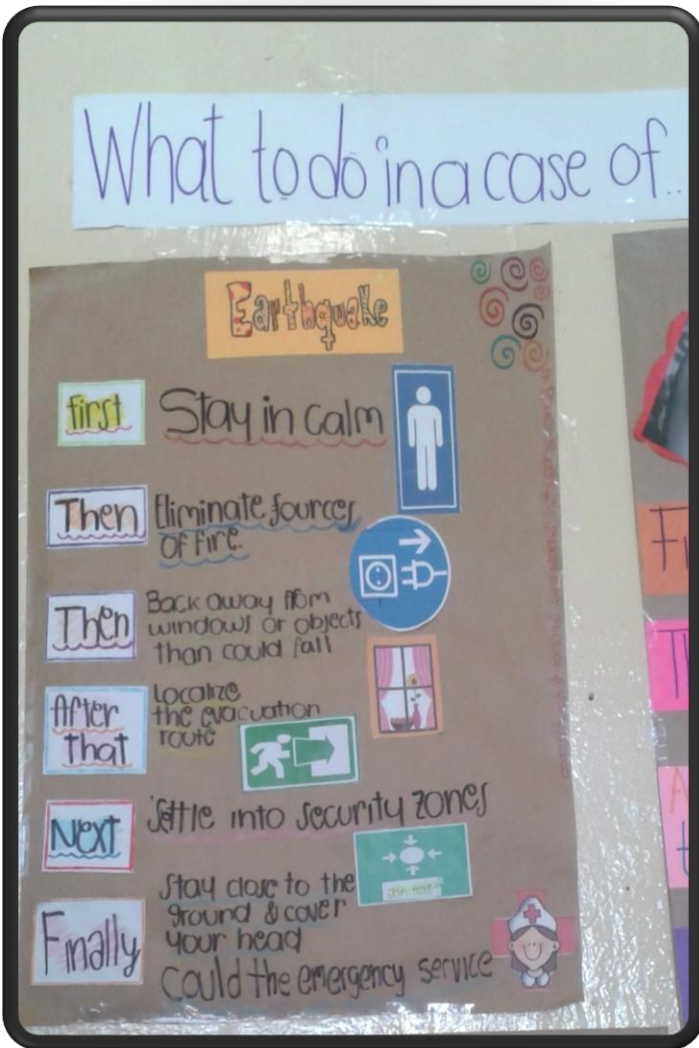 What to do in a case of..
Earthquake
first
Stay in calm
Then
Eliminate sources
of fire.
Then
Back away from
windows or objects
than could fall
After
that
Localize
the evacuation
route
Next
Settle into security zones
Finally
Stay close to the
ground & cover
your head
Could the emergency service